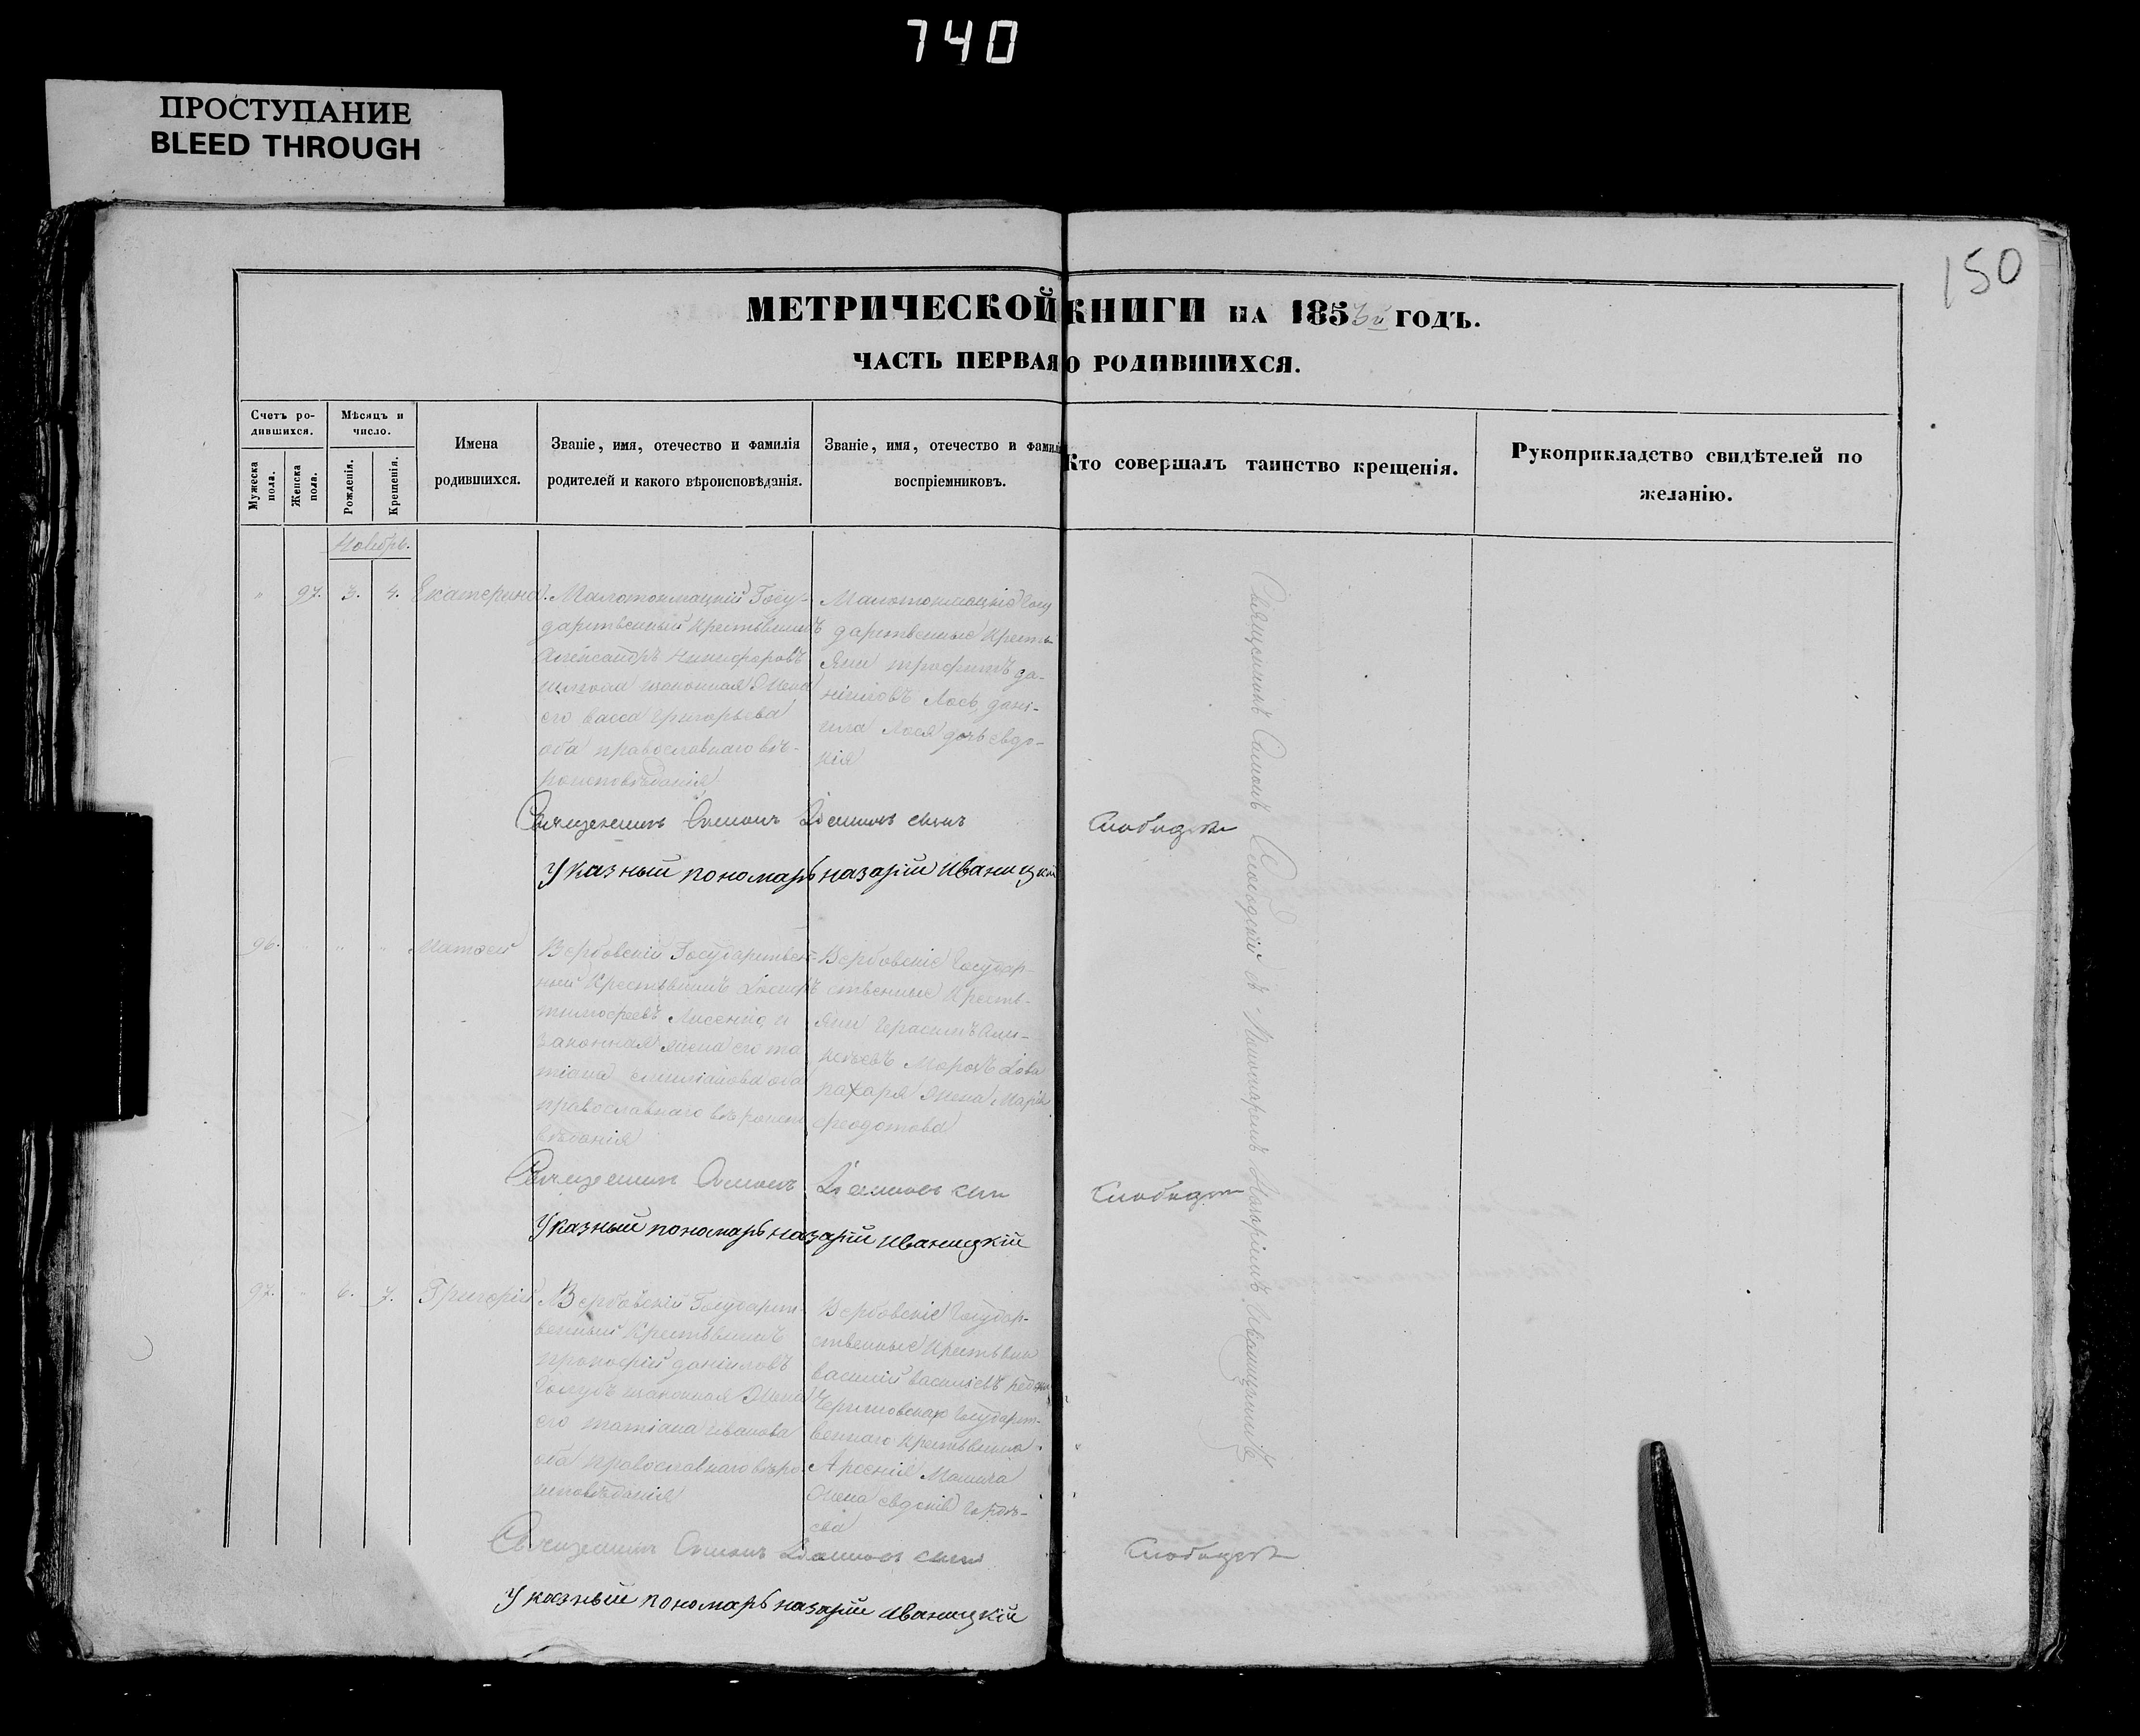 740
ПРОСТУПАНИЕ
BLEED THROUGH
150
МЕТРИЧЕСКОЙ КНИГИ НА 1853й ГОДЪ.
ЧАСТЬ ПЕРВАЯ О РОДИВШИХСЯ.
Счетъ ро-
дившихся.
Мужеска
пола.
Женска
пола.
Мѣсяцъ и
число.
Рожденія.
Крещенія.
Имена
родившихся.
Званіе, имя, отечество и фамилія
родителей и какого вѣроисповѣданія.
Званіе, имя, отечество и фамилі
воспріемниковъ.
Кто совершалъ таинство крещенія.
Рукоприкладство свидѣтелей по
желанію.
Ноябрь.
" 97. 3. 4. Екатерина.
Малотокмацкій Госу-
дарственный крестьянинъ
Александръ Никифоровъ
законная жена
его васса григорьева
оба православнаго вѣ-
роисповѣданія
Малотокмацкіе Госу
дарственные кресть
яни трофимъ да-
ніиловъ Лось, дані-
ила Лося дочь евдо-
кія
Священникъ Симонъ сынъ
Слободск
Указный пономарь назарій Иваницкій
96. " " " Матвей
Вербовскій Государствен-
ный Крестьянинъ
тимофеевъ Лисенко и
законная жена его та
тіана емиліанова оба
православнаго вѣроиспо
вѣданія
Вербовскіе Государ-
ственные Кресть-
яни Герасимъ
Морозъ
пахаря жена Марія
феодотова
Священникъ Симонъ сын
Слободск
Указный пономарь назарій иваницкій
97. " 6. 7. Григорій
Вербовскій Государст-
венный Крестьянинъ
прокофій даніиловъ
Голубъ законная жена
его татіана иванова
оба православнаго вѣро-
исповѣданія
Вербовскіе Государ-
ственные крестьяни
василій васильевъ
Черниговскаго Государст-
веннаго крестьянина
Арсенія
жена евдокія Гордѣ-
ева
Священникъ Симонъ сынъ
Слободск
Указный пономарь назарій иваницкій
Священникъ Симонъ Слободскій съ Пономаремъ Назаріемъ Иваницкимъ.